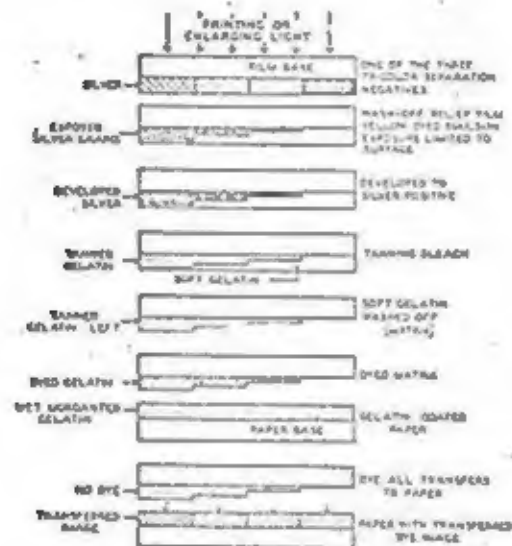 PRINTING OR
ENLARGING LIGHT
FILM BASE
ONE OF THE THREE
TRICOLOR SEPARATION
NEGATIVES
SILVER
EXPOSED
SILVER GRAINS
WASH-OFF RELIEF FILM
YELLOW DYED EMULSION
EXPOSURE LIMITED TO
SURFACE
DEVELOPED
SILVER
DEVELOPED TO
SILVER POSITIVE
TANNED
GELATIN
TANNING BLEACH
SOFT GELATIN
TANNED
GELATIN LEFT
SOFT GELATIN
WASHED OFF
(MATRIX)
DYED GELATIN
DYED MATRIX
WET MORDANTED
GELATIN
GELATIN COATED
PAPER
PAPER BASE
NO DYE
DYE ALL TRANSFERS
TO PAPER
TRANSFERRED
IMAGE
PAPER WITH TRANSFERRED
DYE IMAGE